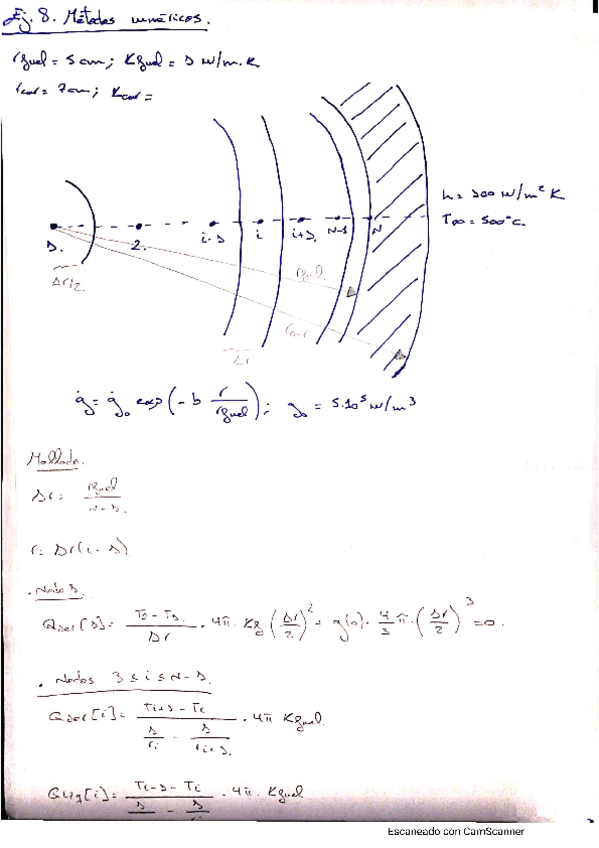 Ej. 8. Métodos numéricos.
rfuel = 5 cm; Kfuel = 1 W/m.K
rcov = 7cm; Kcov =
h = 100 W/m² K
T∞ = 500°C.
1. 2. i-1 i i+1 N-1 N
Δr/2
rfuel
rcov
Δr
ġ = ġ₀ exp(-b r/rfuel); g₀ = 5.10⁵ W/m³
Mallado.
Δr = rfuel/N-1.
r = Δr(i-1)
. Nodo 1.
Qder[1] = T2-T1/Δr . 4π. Kg.(Δr/2)² + g(0). 4/3 π.(Δr/2)³ = 0.
. Nodos 3 ≤ i ≤ N-1.
Qder[i] = Ti+1 - Ti / 1/ri - 1/ri+1. . 4π Kfuel
Qizq[i] = Ti-1 - Ti / 1 - 1/ri . 4π. Kfuel
Escaneado con CamScanner